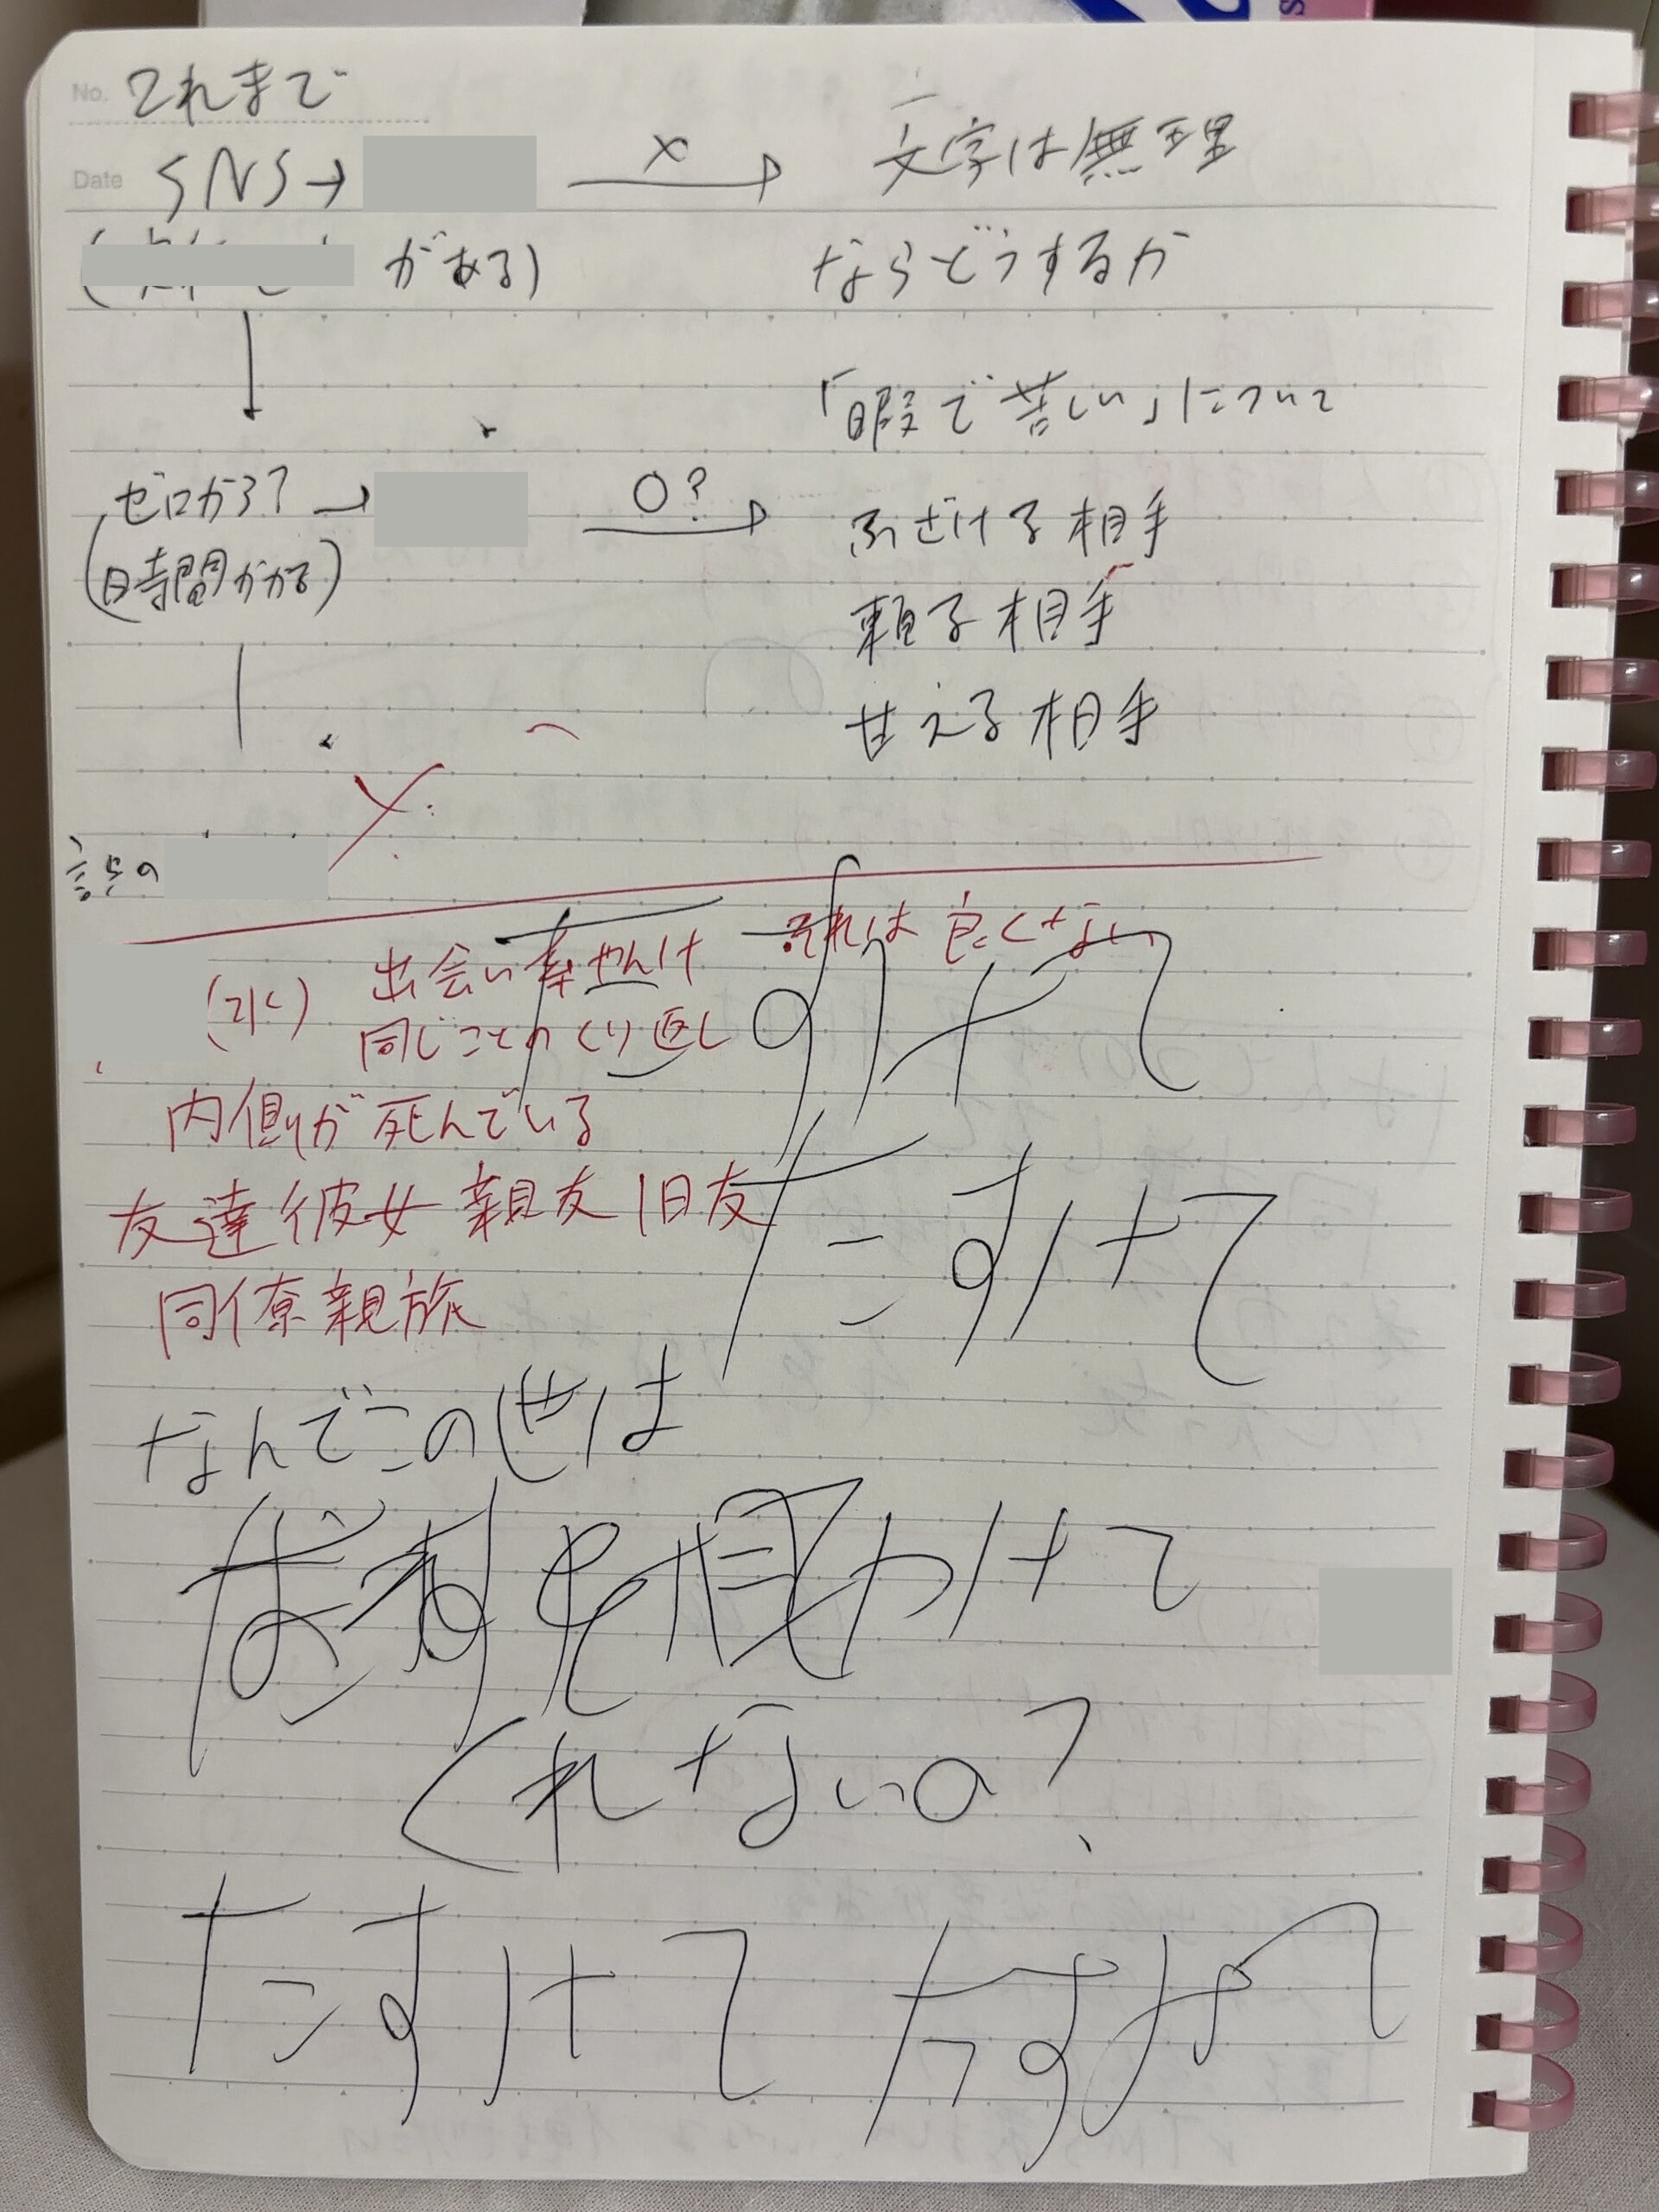 No. これまで
Date SNS→ × 文字は無理
がある) ならどうするか
「暇で苦しい」について
ゼロから?→ ○? ふざける相手
(時間かかる) 頼る相手
甘える相手
話の
出会い それは良くない
同じことのくり返し
たすけて
内側が死んでいる
友達彼女親友旧友
たすけて
同僚親族
なんでこの世は
かけて
くれないの?
たすけて